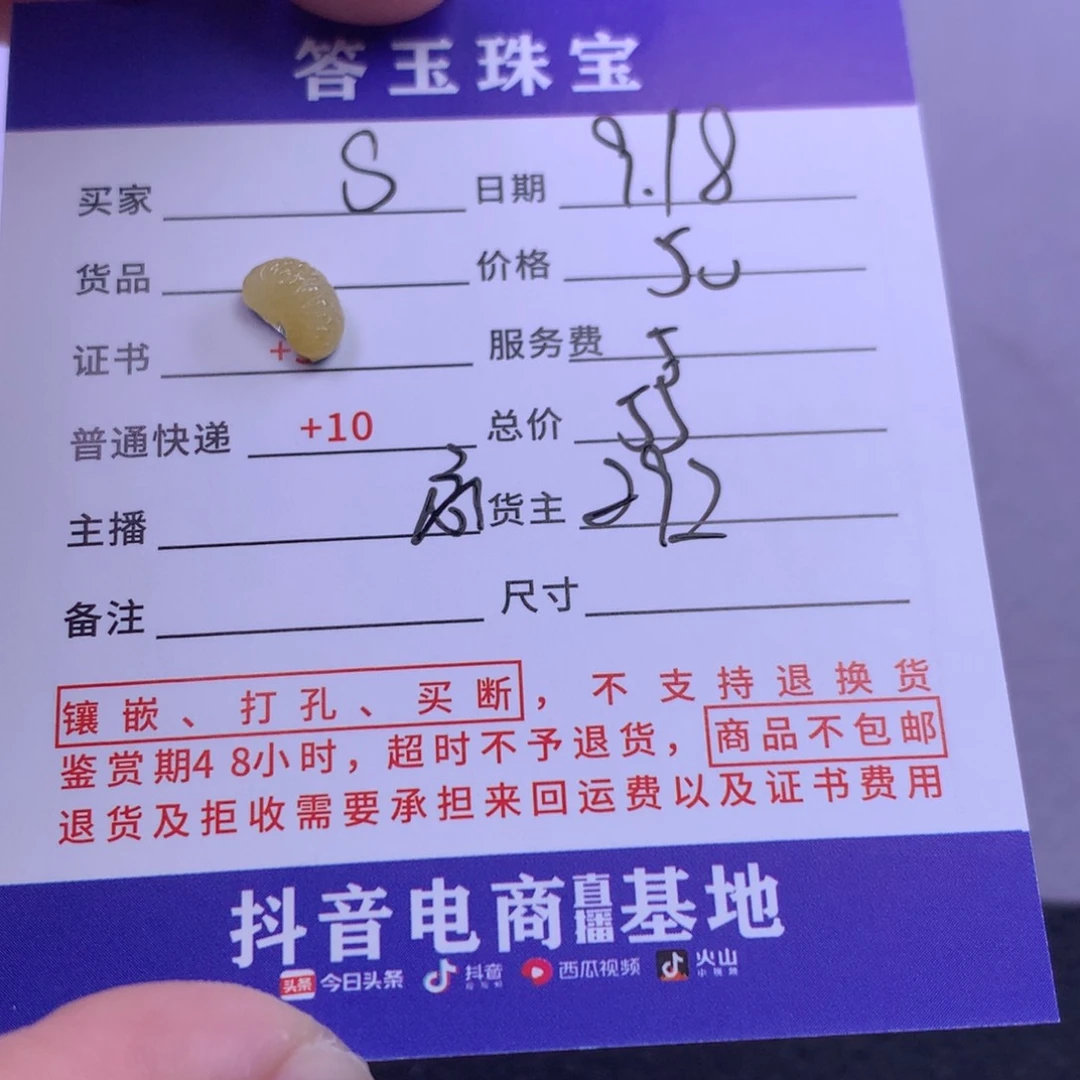 答玉珠宝
买家 S 日期 9.18
货品 价格 50
证书 + 服务费 5
普通快递 +10 总价 55
主播 货主 292
备注 尺寸
镶嵌、打孔、买断，不支持退换货
鉴赏期48小时，超时不予退货，商品不包邮
退货及拒收需要承担来回运费以及证书费用
抖音电商直播基地
头条 今日头条 抖音 西瓜视频 火山